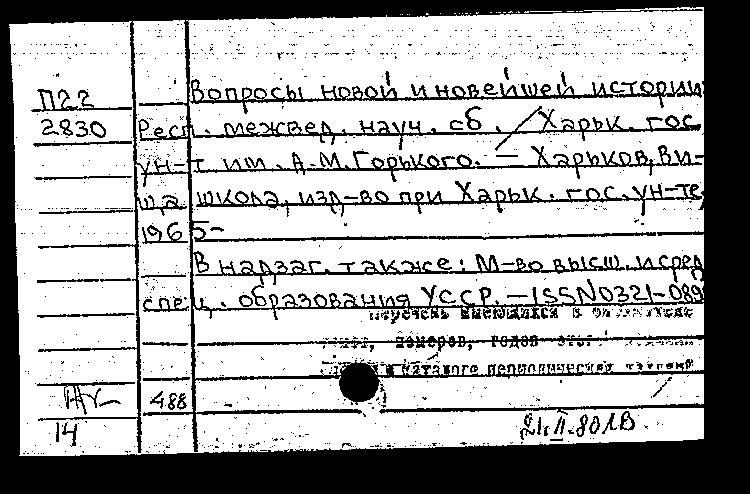 П22 Вопросы новой и новейшей истории:
2830 Респ. межвед. науч. сб. / Харьк. гос.
ун-т им. А.М. Горького. — Харьков, Ви-
ща школа, изд-во при Харьк. гос. ун-те,
1965-
В надзаг. также: М-во высш. и сред.
спец. образования УССР. — ISSN0321-089
перечень имеющихся в
номеров, годов
в каталоге периодических
488
14
21.II.80